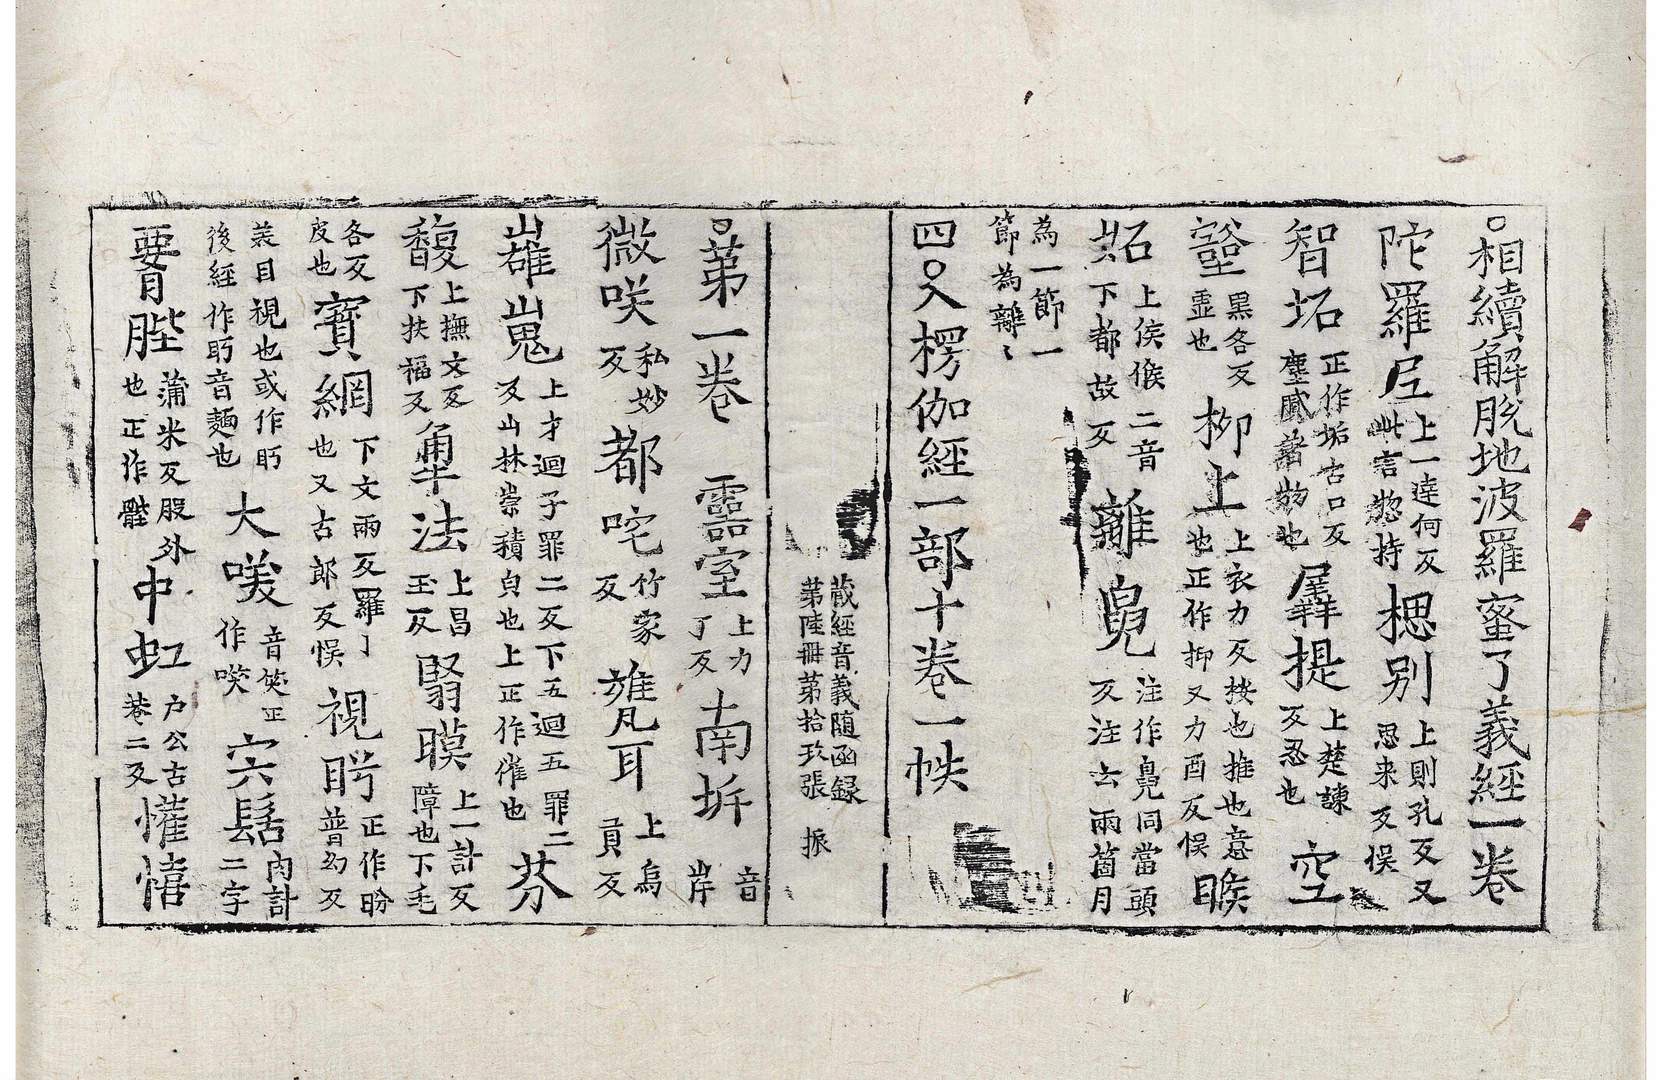 ○相續解脫地波羅蜜了義經一卷
陀羅尼上一達何反此言惣持楒別上則孔反又思来反悮
智坧正作垢古口反塵膩著物也羼提上楚諫反忍也空
壑黒各反虚也枊上上衣力反按也推也意也正作抑又力酉反悮㬋
䂠上侯候二音下都故反離皃注作㒵同當頭反注云兩箇月
為一節一節為離〻
四○入楞伽經一部十卷一帙
藏經音義随函録第陸冊第拾玖張 振
○苐一卷 霝室上力丁反南坼音岸
微咲私妙反都咤竹家反甕耳上烏貢反
嶵嵬上才迴子罪二反下五迴五罪二反山林崇積皃也上正作嶊也芬
馥上撫文反下扶福反犎法上昌玉反翳瞙上一計反障也下毛
各反皮也寳網下文兩反羅冂也又古郎反悮視盻正作盼普幻反
美目視也或作眄後經作眄音麵也大㗛音笑正作咲宍髻肉計二字
䯗䏶蒲米反股外也正作髀中虹户公古巷二反懽憘